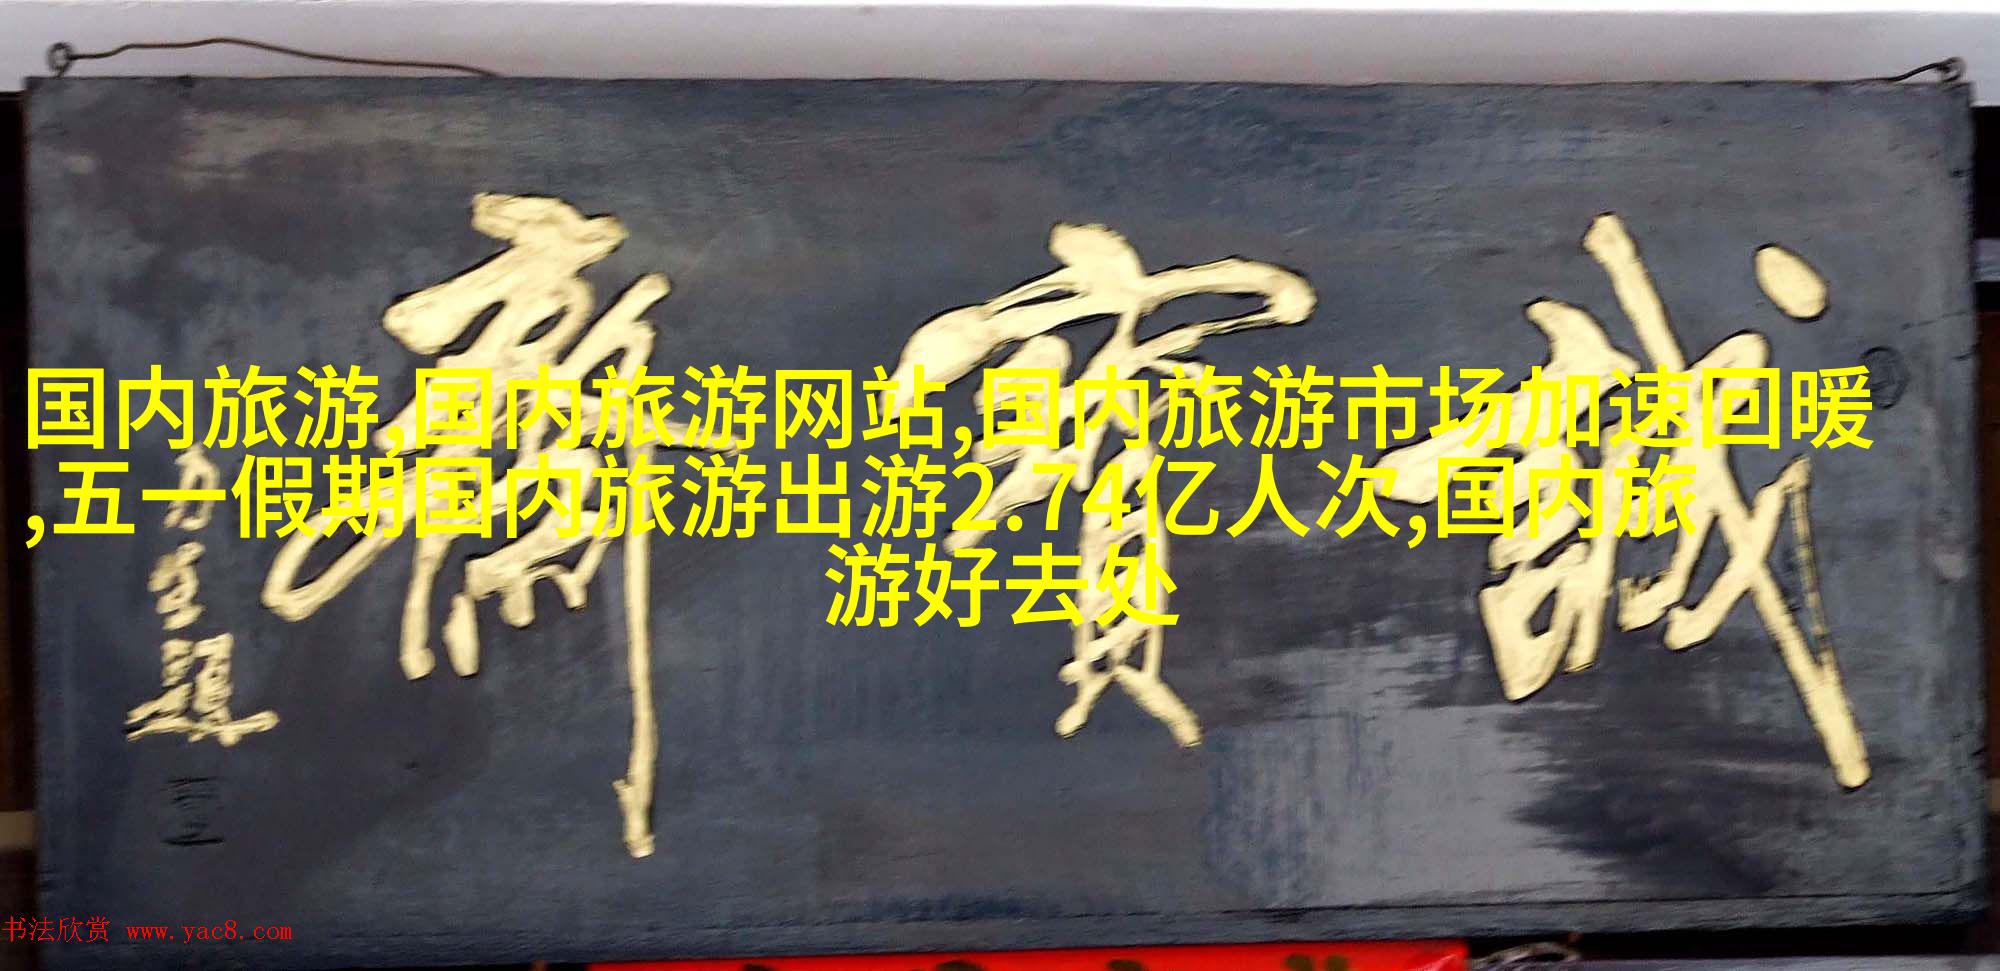 誠寶齋
生題
国内旅游,国内旅游网站,国内旅游市场加速回暖
,五一假期国内旅游出游2.74亿人次,国内旅
游好去处
书法欣赏 www.yac8.com